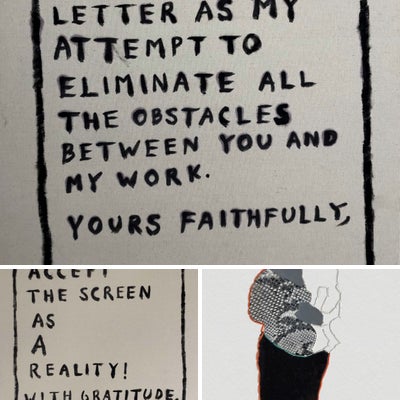 LETTER AS MY
ATTEMPT TO
ELIMINATE ALL
THE OBSTACLES
BETWEEN YOU AND
MY WORK.
YOURS FAITHFULLY,
ACCEPT
THE SCREEN
AS
A
REALITY!
WITH GRATITUDE,